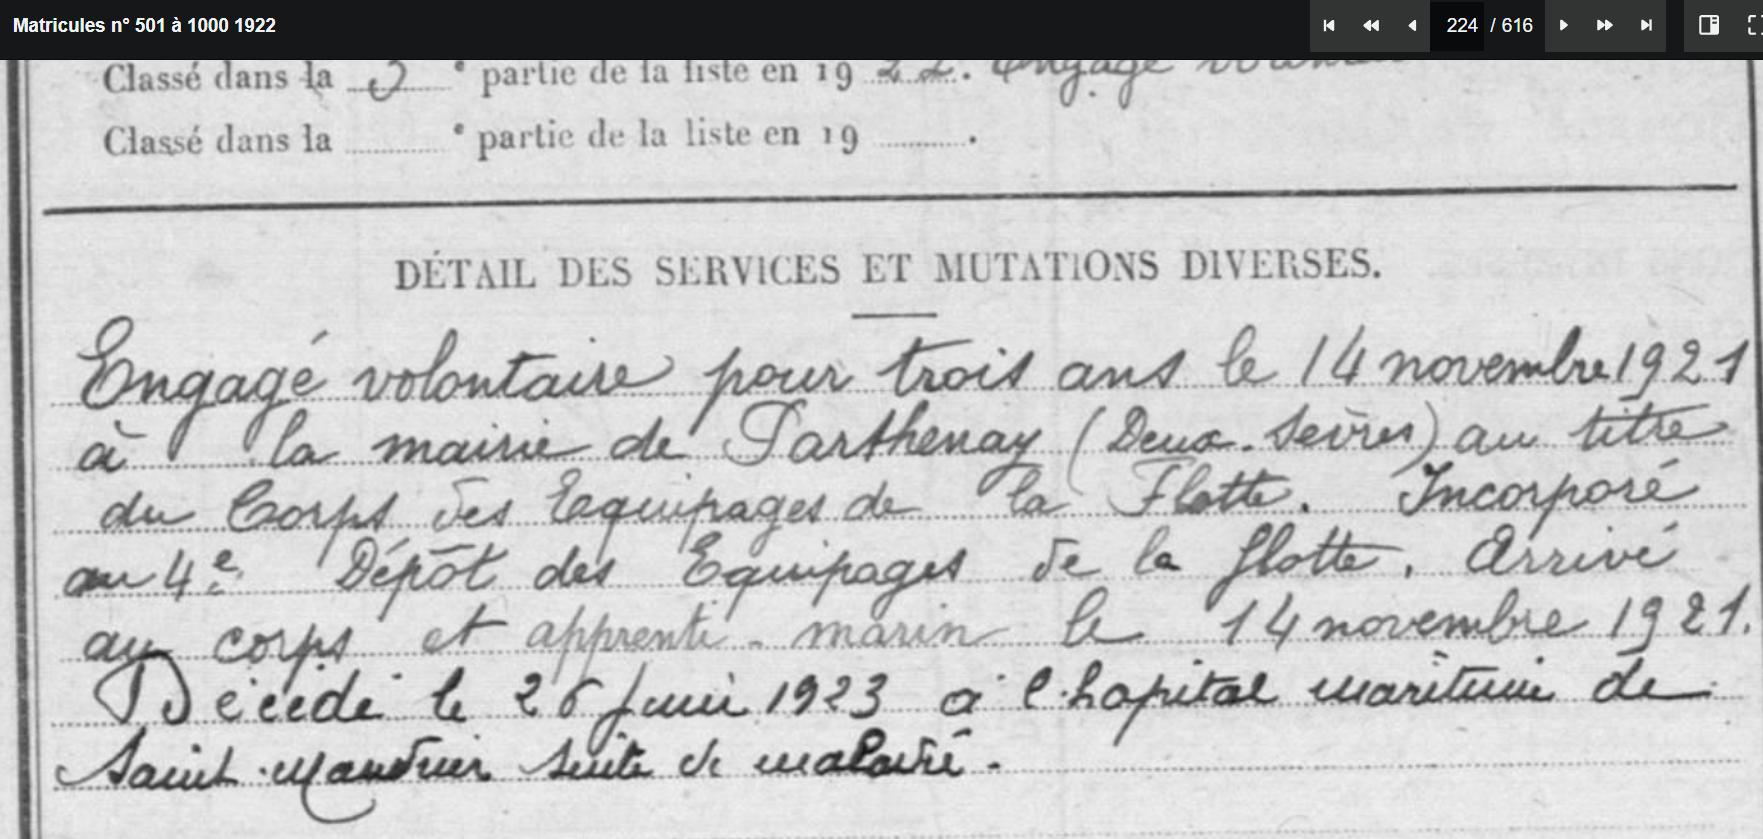 Matricules n° 501 à 1000 1922
224 / 616
Classé dans la 3 e partie de la liste en 19 22. Engagé volontaire
Classé dans la e partie de la liste en 19 .
DÉTAIL DES SERVICES ET MUTATIONS DIVERSES.
Engagé volontaire pour trois ans le 14 novembre 1921
à la mairie de Parthenay (Deux-Sèvres) au titre
du Corps des Equipages de la Flotte. Incorporé
au 4e Dépôt des Equipages de la flotte. Arrivé
au corps et apprenti-marin le 14 novembre 1921.
Décédé le 26 Juin 1923 à l'hopital maritime de
Saint-Mandrier suite de maladie.